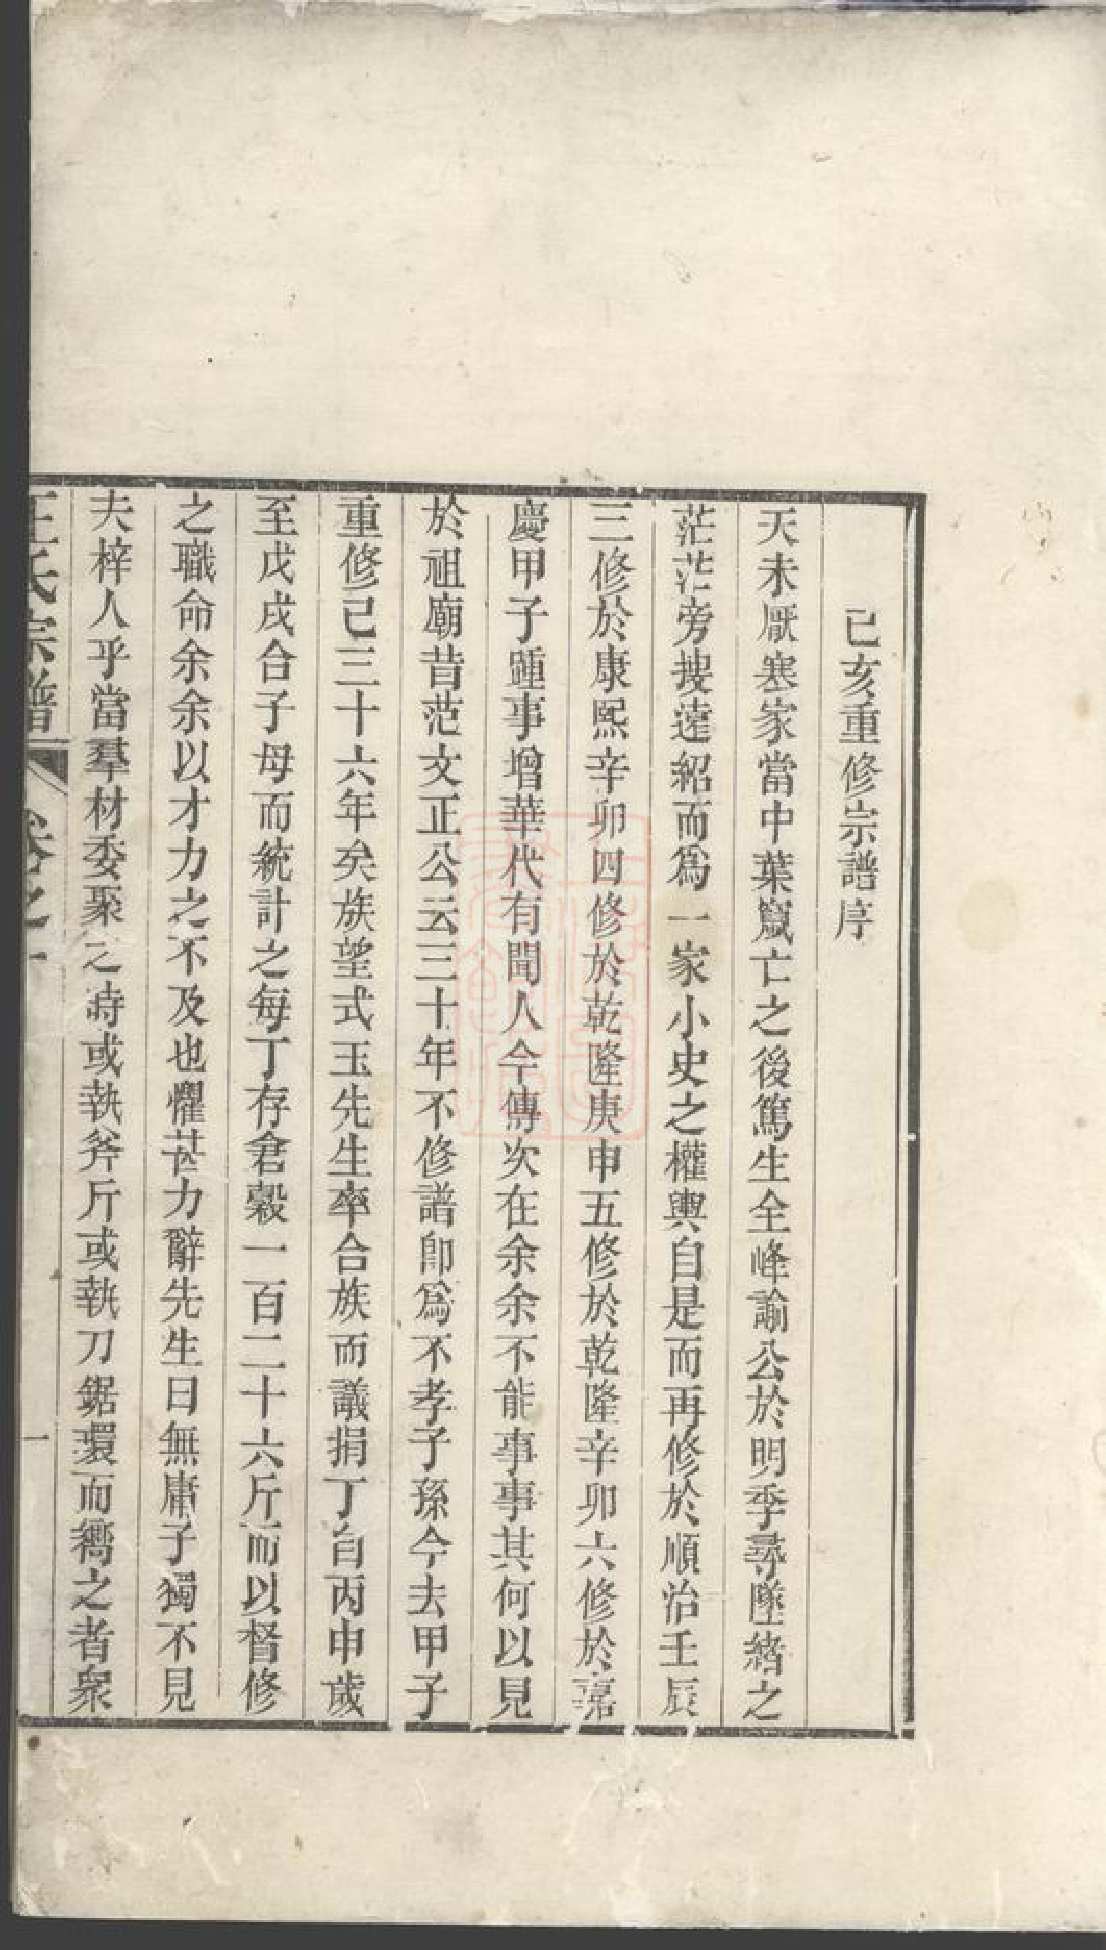 己亥重修宗譜序
天未厭塞家當中葉竄亡之後篤生全峰諭公於明季尋墜緒之
茫茫旁搜遠紹而爲一家小史之權輿自是而再修於順治壬辰
三修於康熙辛卯四修於乾隆庚申五修於乾隆辛卯六修於嘉
慶甲子踵事增華代有聞人今傳次在余余不能事事其何以見
於祖廟昔范文正公云三十年不修譜卽爲不孝子孫今去甲子
重修已三十六年矣族望式玉先生率合族而議捐丁自丙申歲
至戊戌合子母而統計之每丁存倉穀一百二十六斤而以督修
之職命余余以才力之不及也懼甚力辭先生曰無庸子獨不見
夫梓人乎當羣材委聚之時或執斧斤或執刀鋸環而嚮之者衆
王氏宗譜 卷之一 一